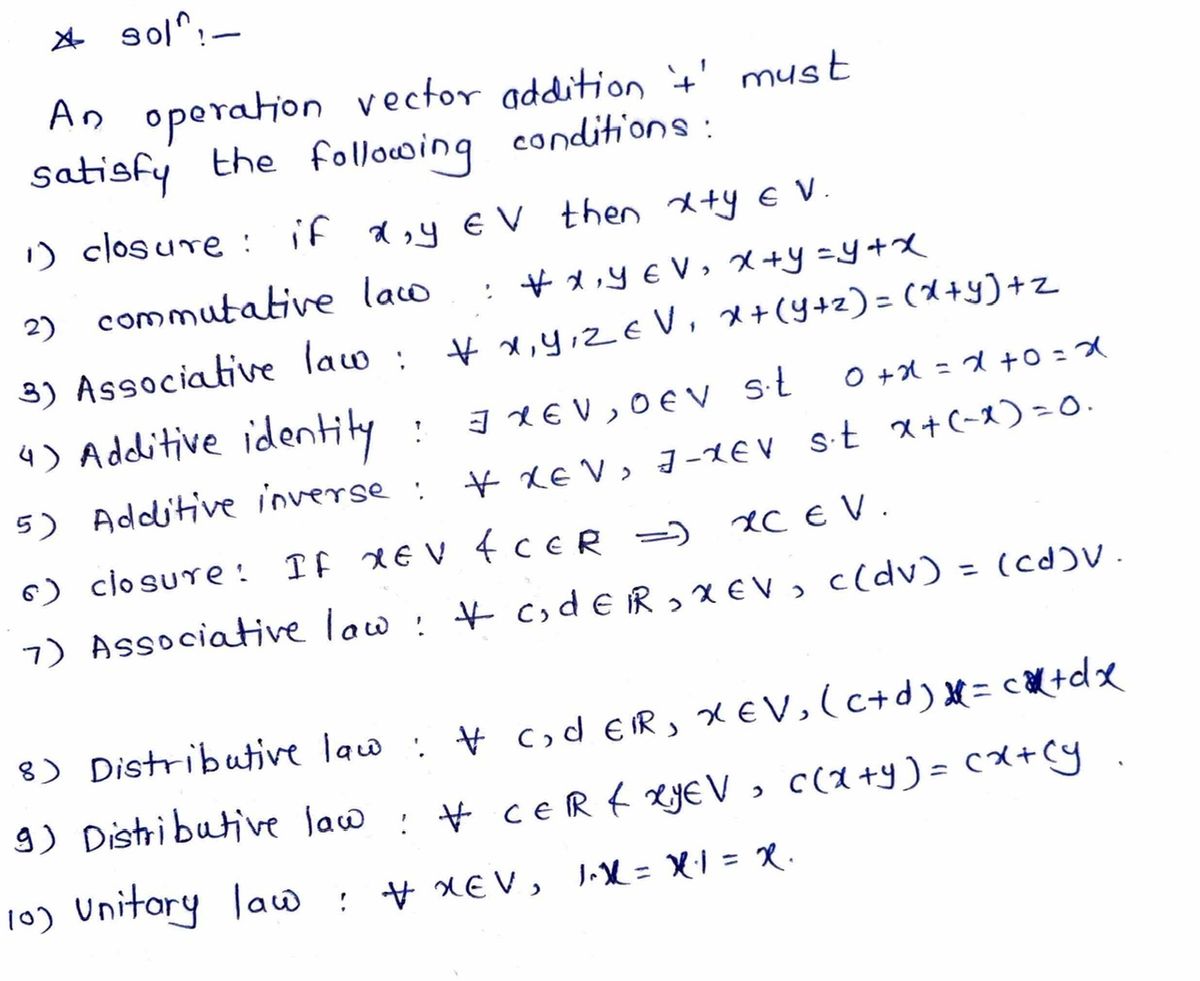 * solⁿ :-
An operation vector addition '+' must
satisfy the following conditions :
1) closure : if x,y ∈ V then x+y ∈ V.
2) commutative law : ∀ x,y ∈ V, x+y = y+x
3) Associative law : ∀ x,y,z ∈ V, x+(y+z) = (x+y)+z
4) Additive identity : ∃ x∈V, 0∈V s.t 0+x = x+0 = x
5) Additive inverse : ∀ x∈V, ∃ -x∈V s.t x+(-x)=0.
6) closure : If x∈V & c∈R ⇒ xc ∈ V.
7) Associative law : ∀ c,d ∈ ℝ, x∈V, c(dv) = (cd)v.
8) Distributive law : ∀ c,d ∈ ℝ, x∈V, (c+d)x = cx+dx
9) Distributive law : ∀ c∈ℝ & xy∈V, c(x+y) = cx+cy.
10) Unitary law : ∀ x∈V, 1.x = x.1 = x.